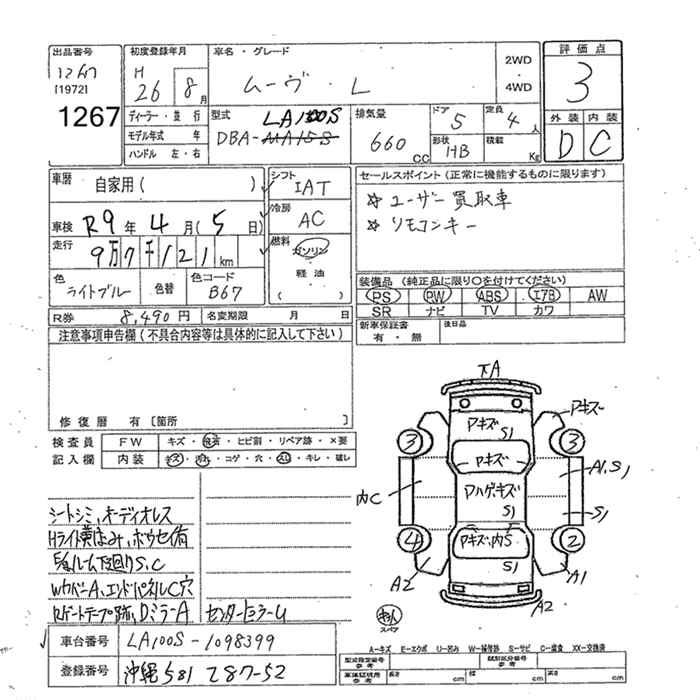 出品番号
1267
[1972]
1267
初度登録年月
H
26 8月
ディーラー・並行
モデル年式 年
ハンドル 左・右
車名・グレード
ムーヴ・L
2WD
4WD
型式
LA100S
DBA-
排気量
660 CC
ドア
5
定員
4人
形状
HB
積載
Kg
評価点
3
外装 内装
D C
車歴
自家用( )
車検 R9年4月(5日)
走行 9万7千121km
色
ライトブルー
色替
色コード
B67
シフト
IAT
冷房
AC
燃料
ガソリン
軽油
( )
セールスポイント(正常に機能するものに限ります)
☆ユーザー買取車
☆リモコンキー
装備品(純正品に限り〇を付けてください)
PS PW ABS エアB AW
SR ナビ TV カワ
R券 8,490円 名変期限 月 日
新車保証書
有・無
後日品
注意事項申告欄(不具合内容等は具体的に記入して下さい)
修復歴 有[箇所 ]
検査員
記入欄
FW キズ・飛石・ヒビ割・リペア跡・×要
内装 キズ・汚れ・コゲ・穴・スレ・キレ・破レ
シートシミ,オーディオレス
Hライト黄ばみ,ホウセイ有
ルーム下回りS,C
WカバーA,エンドパネルC穴
RゲートテープあとDミラーA センターヒョウシキ
車台番号 LA100S-1098399
登録番号 沖縄581 て87-52
下A
アキズ
アキズ
S1
3
3
アキズ
A1,S1
内C
アハゲ,キズ
S1
S1
4
2
アキズ,内S
S1
A2
A1
A2
スペア
A-キズ E-エクボ U-凹み W-補修跡 S-サビ C-腐食 XX-交換済
型式指定番号
参考
類別区分番号
参考
車庫証明用
参考
長さ cm
幅 cm
高さ cm